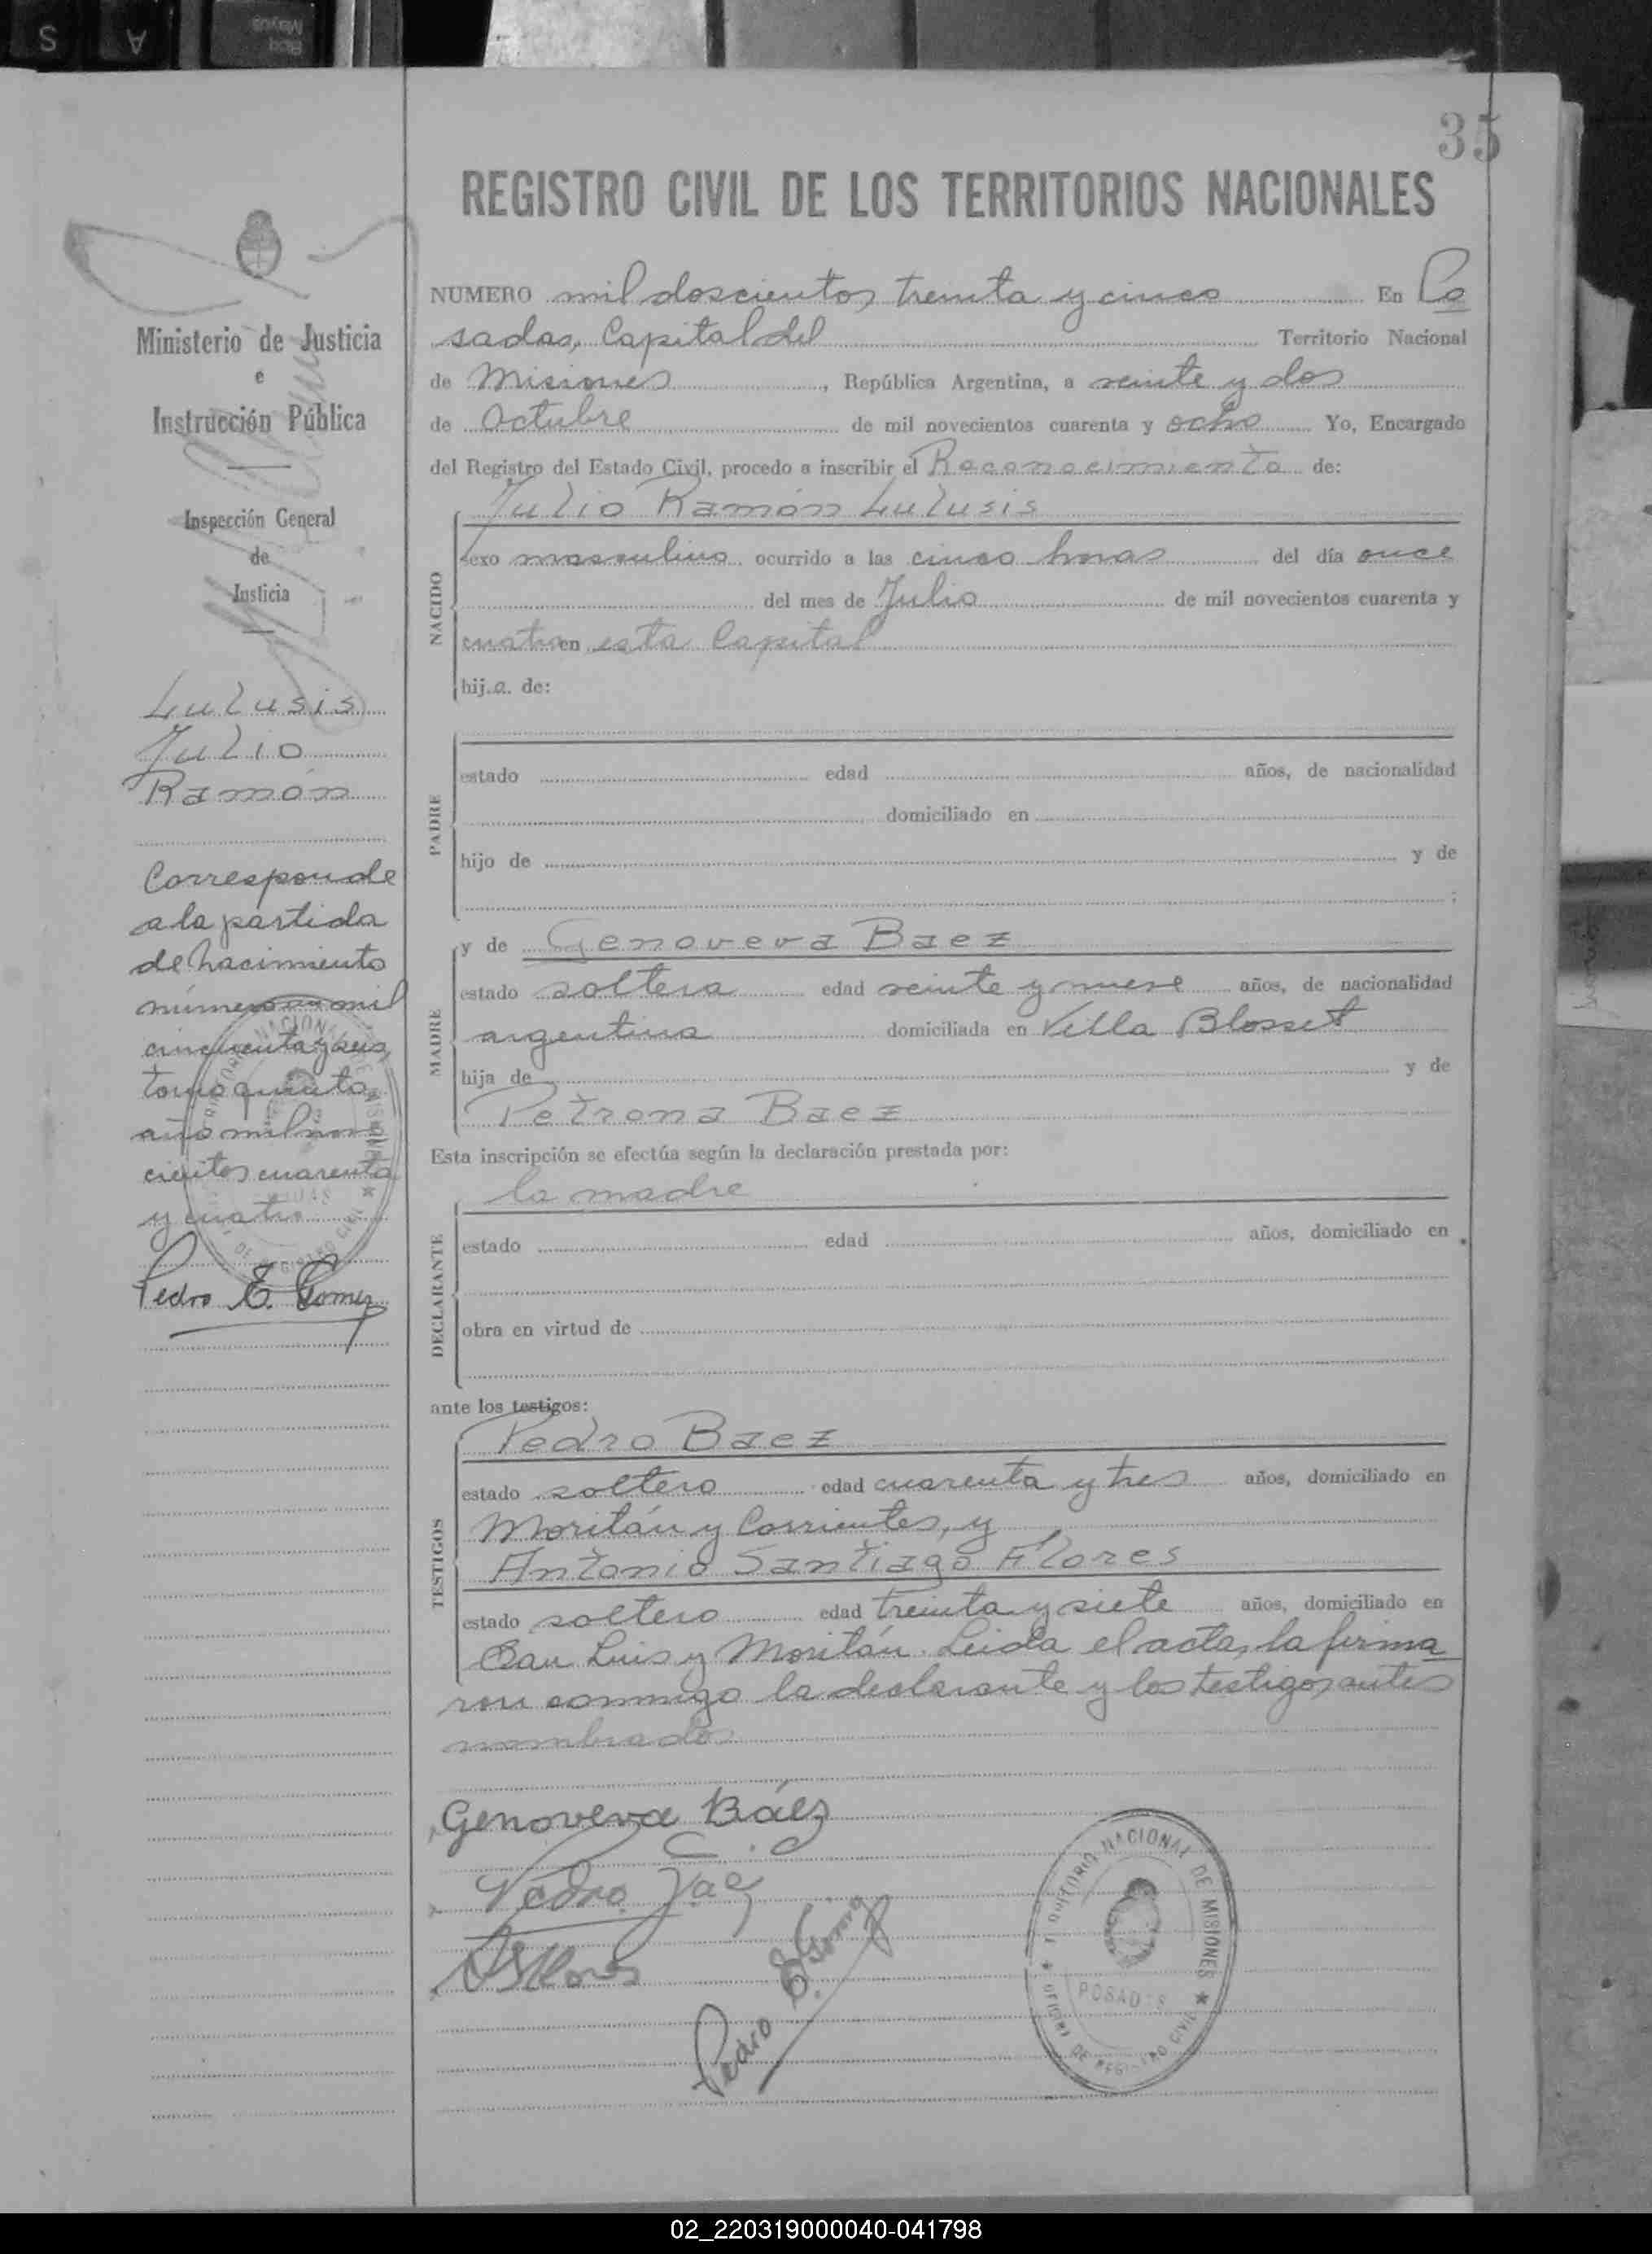 35
REGISTRO CIVIL DE LOS TERRITORIOS NACIONALES
NUMERO mil doscientos treinta y cinco En Po
sadas, Capital del Territorio Nacional
de Misiones, República Argentina, a veinte y dos
de Octubre de mil novecientos cuarenta y ocho Yo, Encargado
del Registro del Estado Civil, procedo a inscribir el Reconocimiento de:
NACIDO
Julio Ramón Lulusis
sexo masculino ocurrido a las cinco horas del día once
del mes de Julio de mil novecientos cuarenta y
cuatro en esta Capital
hij.a. de:
PADRE
estado edad años, de nacionalidad
domiciliado en
hijo de y de
MADRE
y de Genoveva Baez
estado soltera edad veinte y nueve años, de nacionalidad
argentina domiciliada en Villa Blosset
hija de y de
Petrona Baez
Esta inscripción se efectúa según la declaración prestada por:
DECLARANTE
la madre
estado edad años, domiciliado en
obra en virtud de
ante los testigos:
TESTIGOS
Pedro Baez
estado soltero edad cuarenta y tres años, domiciliado en
Moritán y Corrientes, y
Antonio Santiago Flores
estado soltero edad treinta y siete años, domiciliado en
San Luis y Moritán. Leida el acta, la firma
ron conmigo la declarante y los testigos antes
nombrados
Genoveva Báez
Pedro
Pedro E. Gomez
TERRITORIO NACIONAL DE MISIONES
POSADAS
OFICINA DE REGISTRO CIVIL
Ministerio de Justicia
e
Instrucción Pública
Inspección General
de
Justicia
Lulusis
Julio
Ramón
Corresponde
a la partida
de nacimiento
número mil
cincuenta y seis,
tomo quinto,
año mil nove
cientos cuarenta
y cuatro
Pedro E. Gomez
02_220319000040-041798